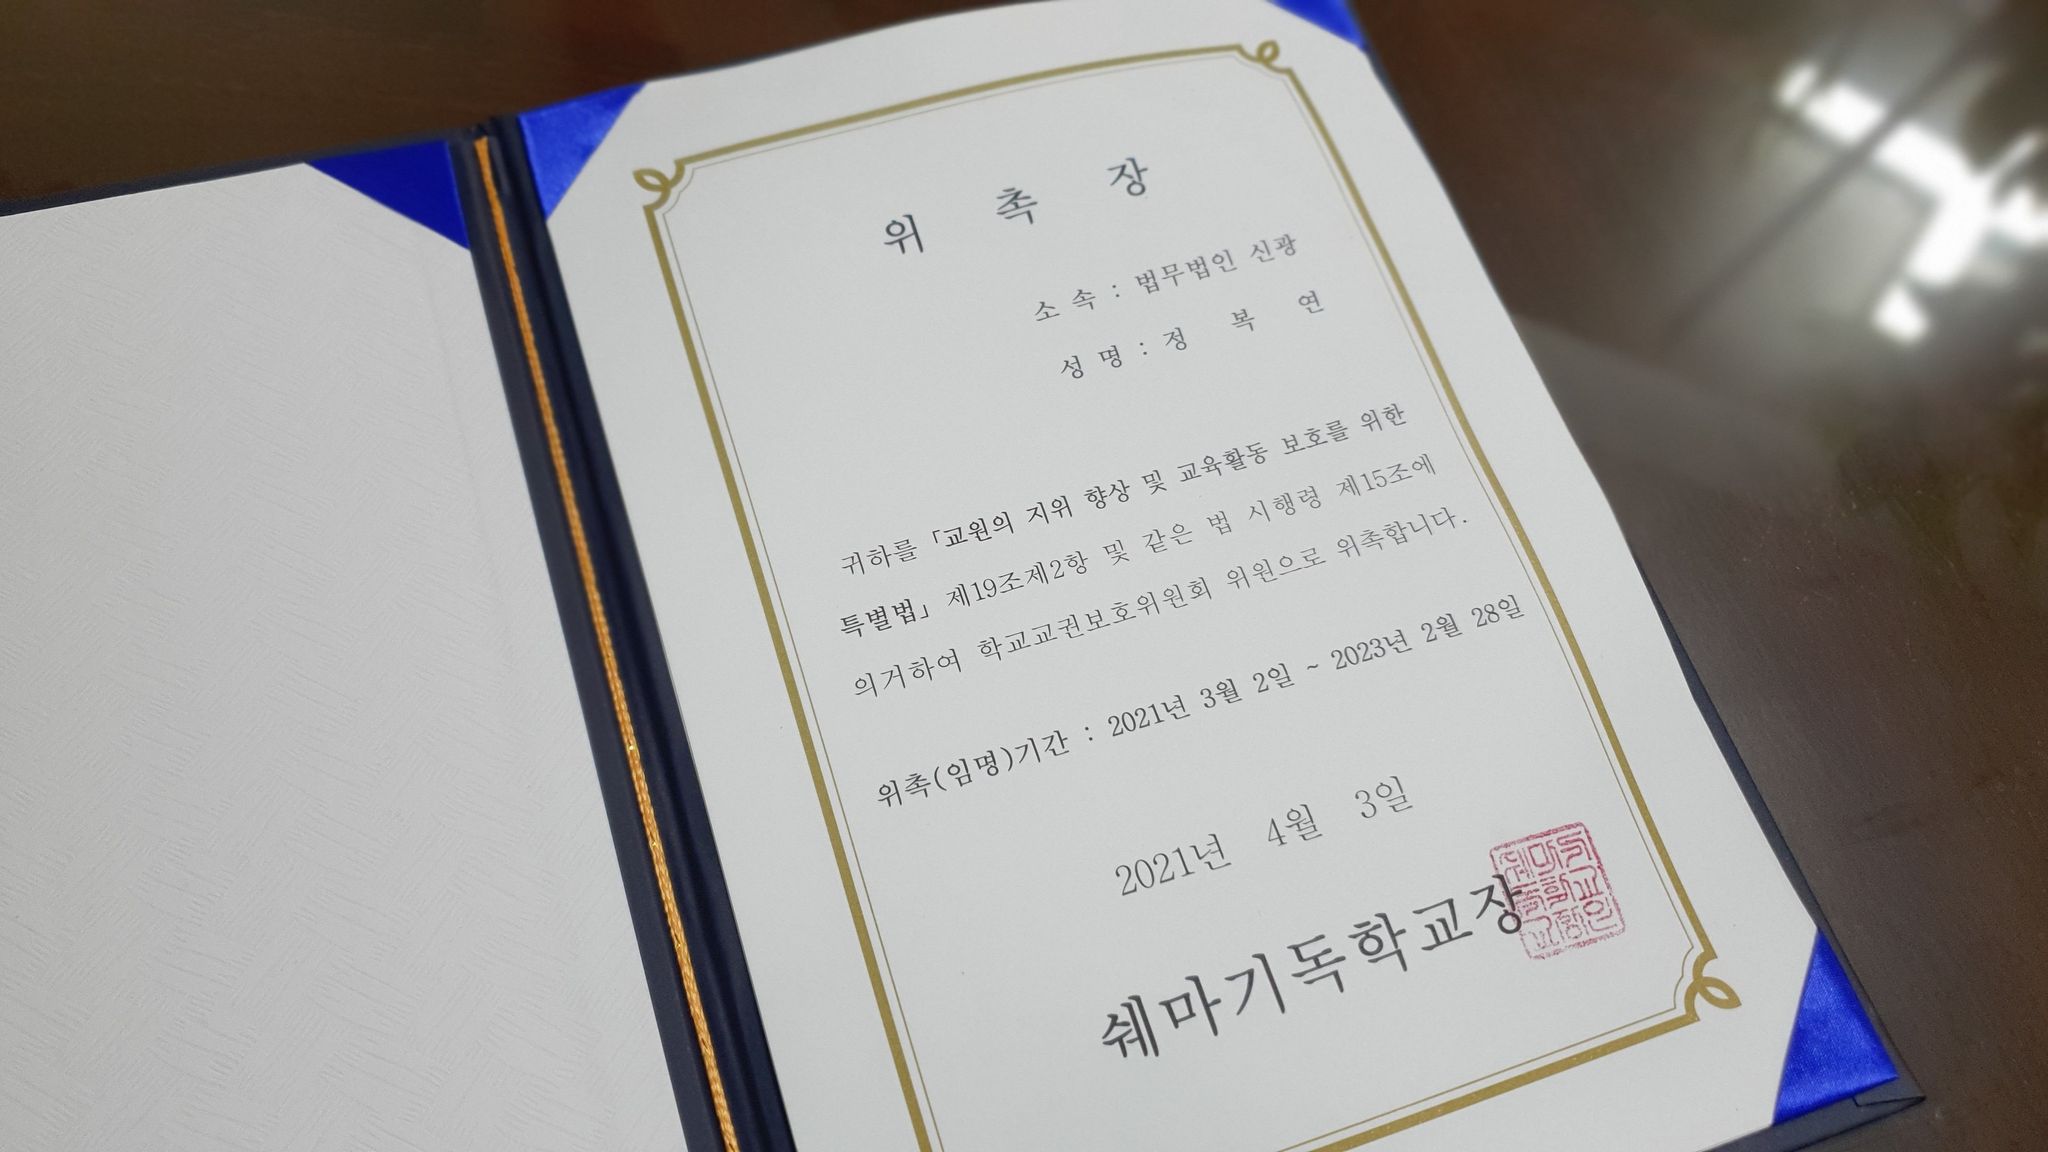 위 촉 장
소 속 : 법무법인 신광
성 명 : 정 복 연
귀하를 「교원의 지위 향상 및 교육활동 보호를 위한
특별법」 제19조제2항 및 같은 법 시행령 제15조에
의거하여 학교교권보호위원회 위원으로 위촉합니다.
위촉(임명)기간 : 2021년 3월 2일 ~ 2023년 2월 28일
2021년 4월 3일
쉐마기독학교장
쉐마기
독학교
교장인